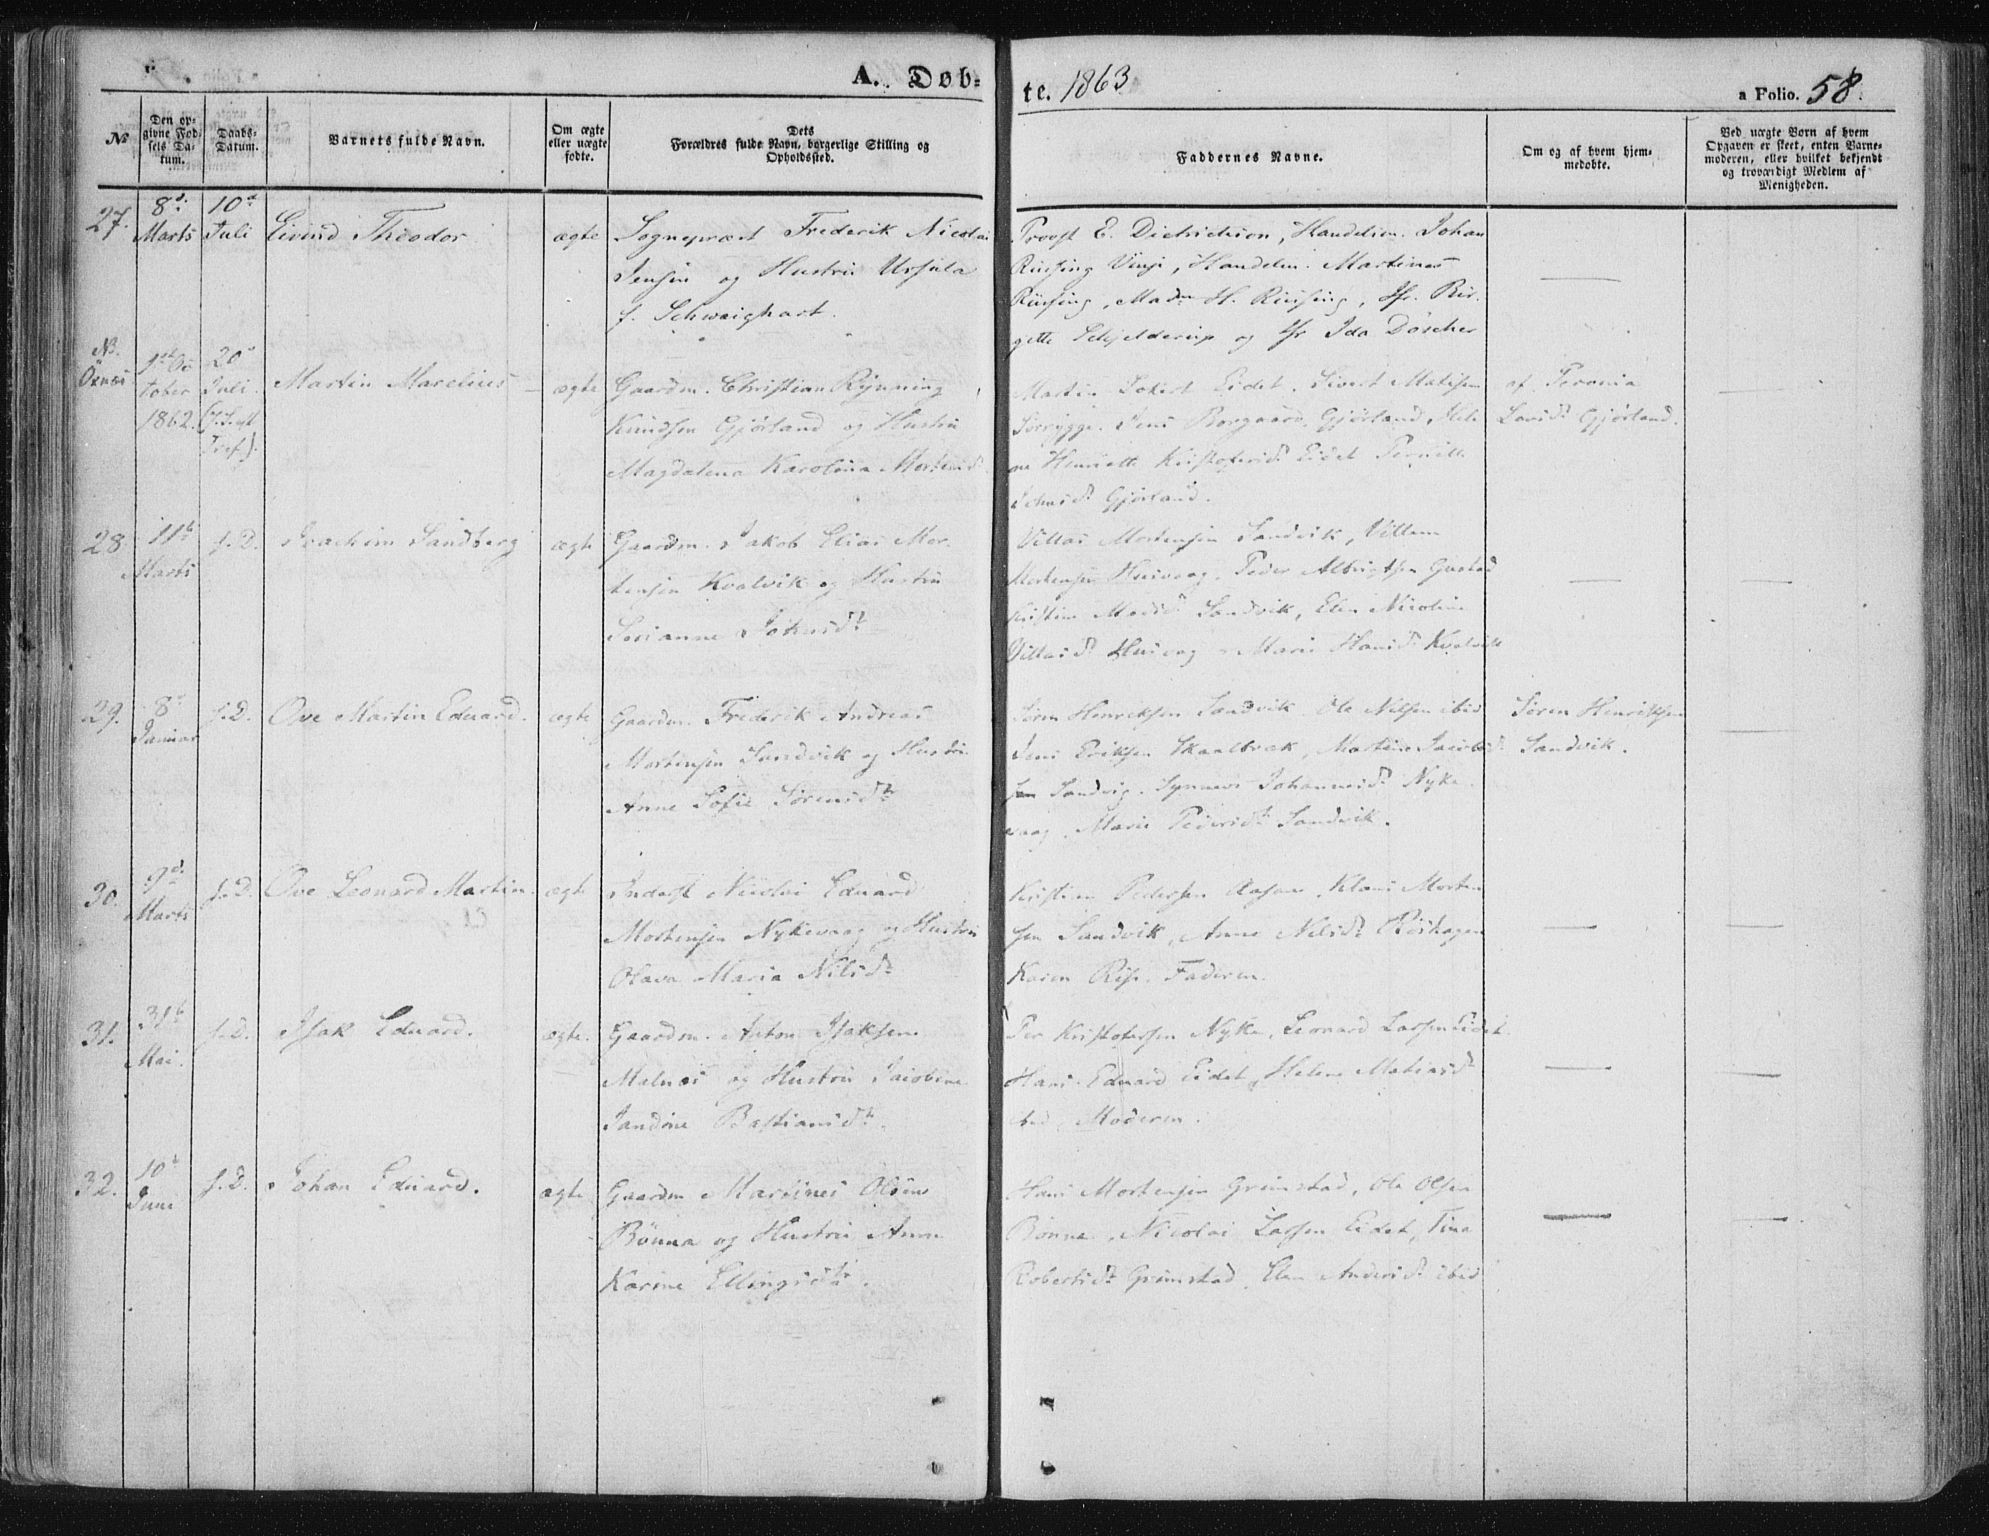 A. Døb-
te. 1863
a Folio. 58.
№
Den op-
givne Fød-
sels Da-
tum.
Daabs-
Datum.
Barnets fulde Navn.
Om ægte
eller uægte
fødte.
Dets
Forældres fulde Navn, borgerlige Stilling og
Opholdssted.
Faddernes Navne.
Om og af hvem hjem-
medøbte.
Ved uægte Børn af hvem
Opgaven er skeet, enten Barne-
moderen, eller hvilket bekjendt
og troværdigt Medlem af
Menigheden.
27.
8de
Marts
10de
Juli
Eivind Theodor
ægte
Sognepræst Frederik Nicolai
Jensen og Hustru Ursula
f. Schwaighart.
Provst E. Dietrichson, Handelsm. Johan
Ruusing Vinje, Handelsm. Martinus
Ruusing, Madm H. Ruusing, Jfr. Bir-
gitte Schjelderup og Jfr Ida Döscher
NB.
Öxnæs
1ste Oc
tober
1862.
20de
Juli
Martin Marelius
ægte
Gaardm. Christian Rynning
Knudsen Gjörland og Hustru
Magdalena Karolina Mortensdtr
Martin Eidet. Sivert Matisen
Jens Borgaard Gjörland, Hele
ne Henriette Kristofersdtr Eidet Pernille
Johnsdtr Gjörland.
af Peronia
Larsdtr Gjörland.
28.
11te
Marts
s. D.
Joachim Sandberg
ægte
Gaardm. Jakob Elias Mor-
tensen Kvalvik og Hustru
Serianne Johnsdtr
Villas Mortensen Sandvik, Villum
Mortensen Husvaag, Peder Albrigtsen
Kristine Sandvik, Elen Nicoline
Villasdtr Husvaag, Maren Hansdtr Kvalvik
29.
8de
Januar
s. D.
Ove Martin Eduard.
ægte
Gaardm. Frederik Andreas
Mortensen Sandvik og Hustru
Anne Sofie Sörensdtr
Sören Henriksen Sandvik Ole Nilsen ibid
Jens Eriksen Skaalbræk, Martine Jacobsdtr
Sandvig. Synneve Johannesdtr Nyke
vaag, Marie Pedersdtr Sandvik.
Sören Henriksen
Sandvik.
30.
9de
Marts
s. D.
Ove Leonard Martin
ægte
Inderst Nicolai Eduard
Mortensen Nykevaag og Hustru
Olava Maria Nilsdtr
Kristian Pedersen Aasan, Klaus Morten
sen Sandvik, Anne Nilsdtr Röshagen
Karen Rise. Faderen.
31.
31te
Mai.
s. D.
Isak Eduard.
ægte.
Gaardm. Anton Isaksen
Malnæs og Hustru Jacobine
Jandine Bastiansdtr
Per Kristofersen Nyke, Leonard Larsen Eidet.
Hans Eduard Eidet, Helene Matiasdtr
ibid. Moderen.
32.
10de
Juni
s. D.
Johan Eduard.
ægte
Gaardm Martines Olsen
Bönna og Hustru Anne
Karine Ellingsdtr.
Hans Mortensen Grimstad, Ole Olsen
Bönna, Nicolai Larsen Eidet, Tina
Robertsdtr Grimstad, Elen Andersdtr ibid